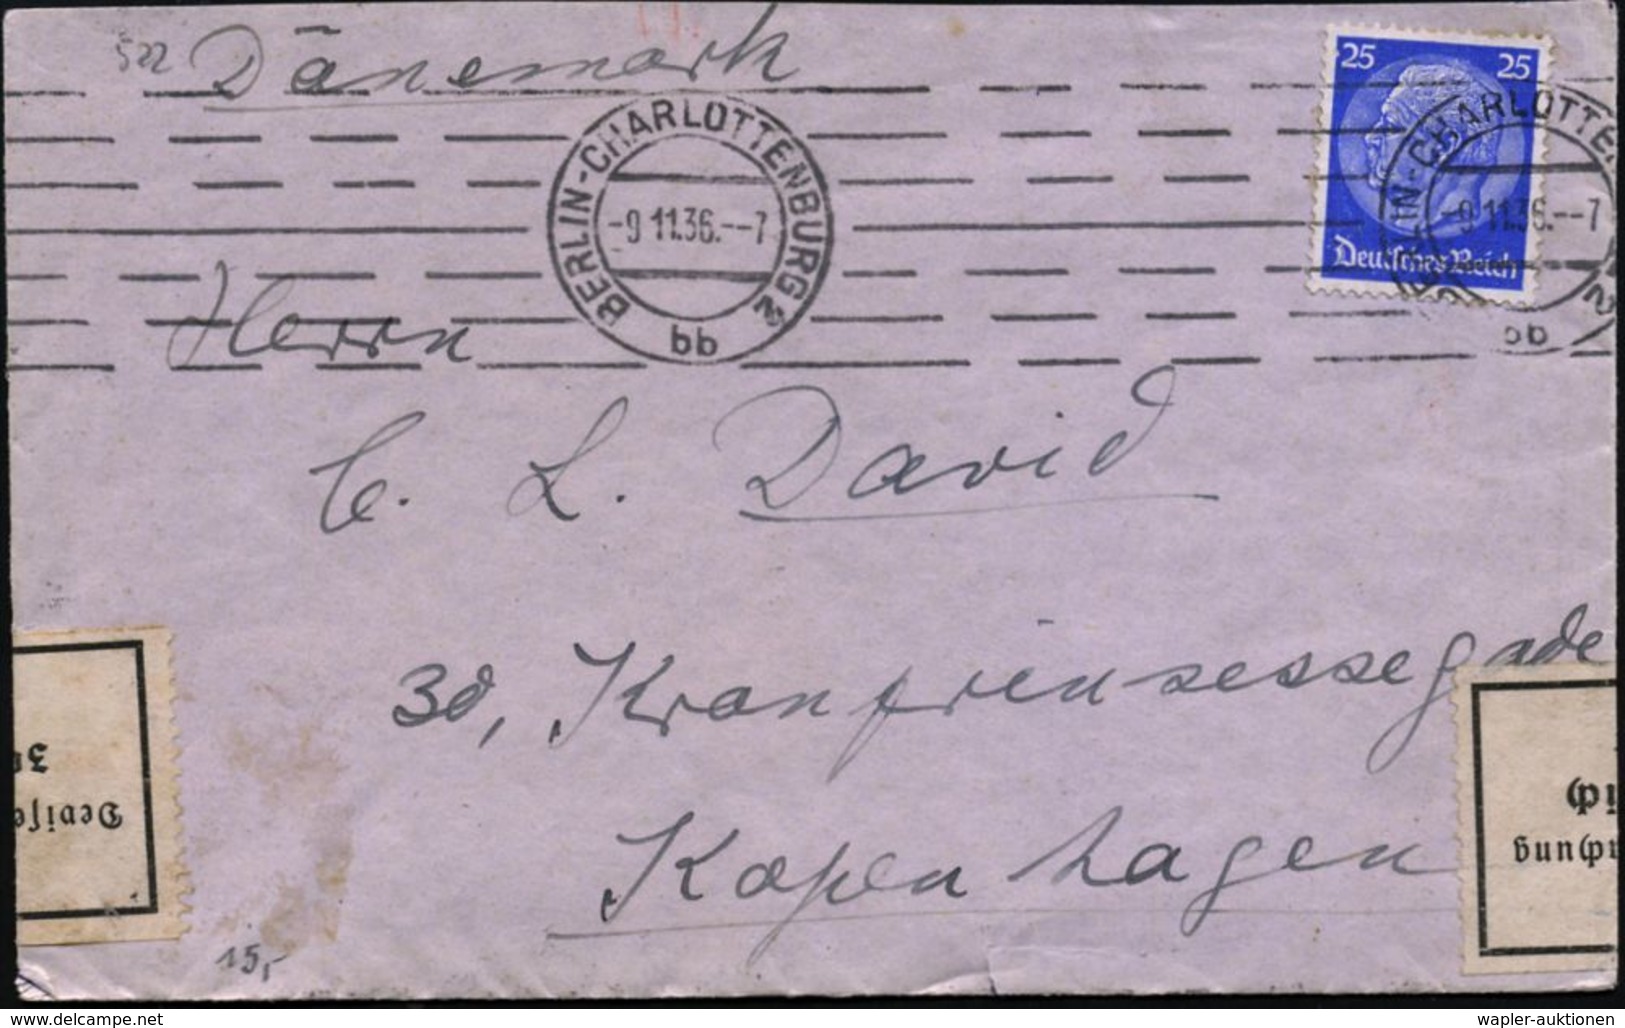 522 Dänemark
25 25
Deutsches Reich
BERLIN-CHARLOTTENBURG 2
-9.11.36.--7
bb
BERLIN-CHARLOTTE
-9.11.36.--7
2
bb
Herrn
C. L. David
30, Kronprinsessegade
Kopenhagen
Devise
15,-
wapler-auktionen
www.delcampe.net